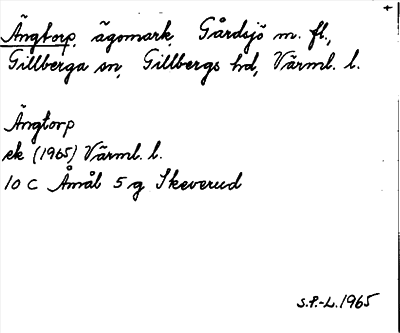 Ängtorp, ägomark, Gårdsjö m. fl.,
Gillberga sn, Gillbergs hd, Värml. l.
Ängtorp
ek (1965) Värml. l.
10 C Åmål 5 g Skeverud
S.P.-L. 1965